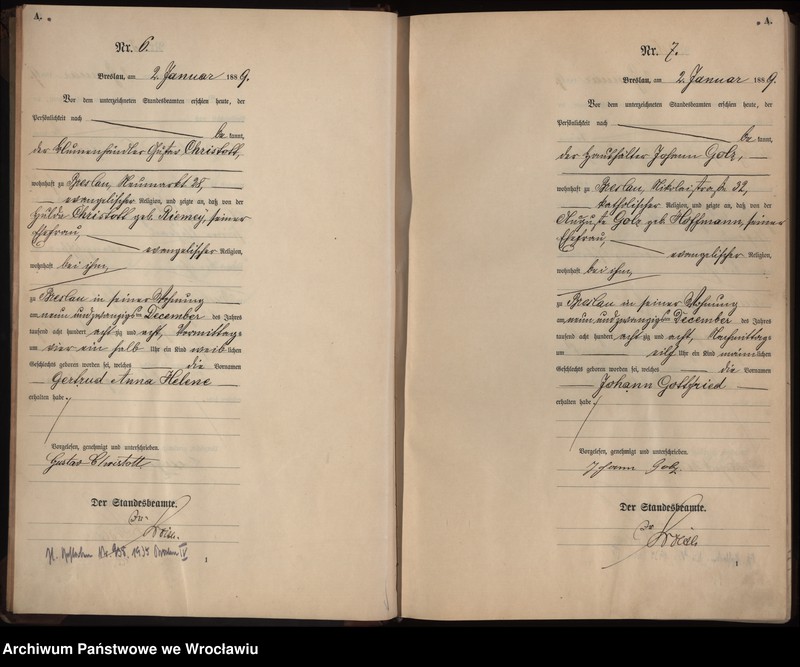 A.
Nr. 6.
Breslau, am 2. Januar 1889.
Vor dem unterzeichneten Standesbeamten erschien heute, der
Persönlichkeit nach
be kannt,
der Blumenhändler Gustav Christoll,
wohnhaft zu Breslau, Neumarkt
evangelischer Religion, und zeigte an, daß von der
Hulda Christoll geb. seiner
Ehefrau,
evangelischer Religion,
wohnhaft bei ihm,
zu Breslau in seiner Wohnung
am neun und zwanzigsten December des Jahres
tausend acht hundert achtzig und acht, Vormittags
um vier ein halb Uhr ein Kind weiblichen
Geschlechts geboren worden sei, welches die Vornamen
Gertrud Anna Helene
erhalten habe.
Vorgelesen, genehmigt und unterschrieben.
Gustav Christoll
Der Standesbeamte.
In
IV
1
A.
Nr. 7.
Breslau, am 2. Januar 1889.
Vor dem unterzeichneten Standesbeamten erschien heute, der
Persönlichkeit nach
be kannt,
der Haushälter Johann Golz,
wohnhaft zu Breslau, Nikolaistraße 32,
katholischer Religion, und zeigte an, daß von der
Auguste Golz geb. Hoffmann, seiner
Ehefrau,
evangelischer Religion,
wohnhaft bei ihm,
zu Breslau in seiner Wohnung
am neun und zwanzigsten December des Jahres
tausend acht hundert achtzig und acht, Nachmittags
um elf Uhr ein Kind männlichen
Geschlechts geboren worden sei, welches die Vornamen
Johann Gottfried
erhalten habe.
Vorgelesen, genehmigt und unterschrieben.
Johann Golz
Der Standesbeamte.
In
1
Archiwum Państwowe we Wrocławiu